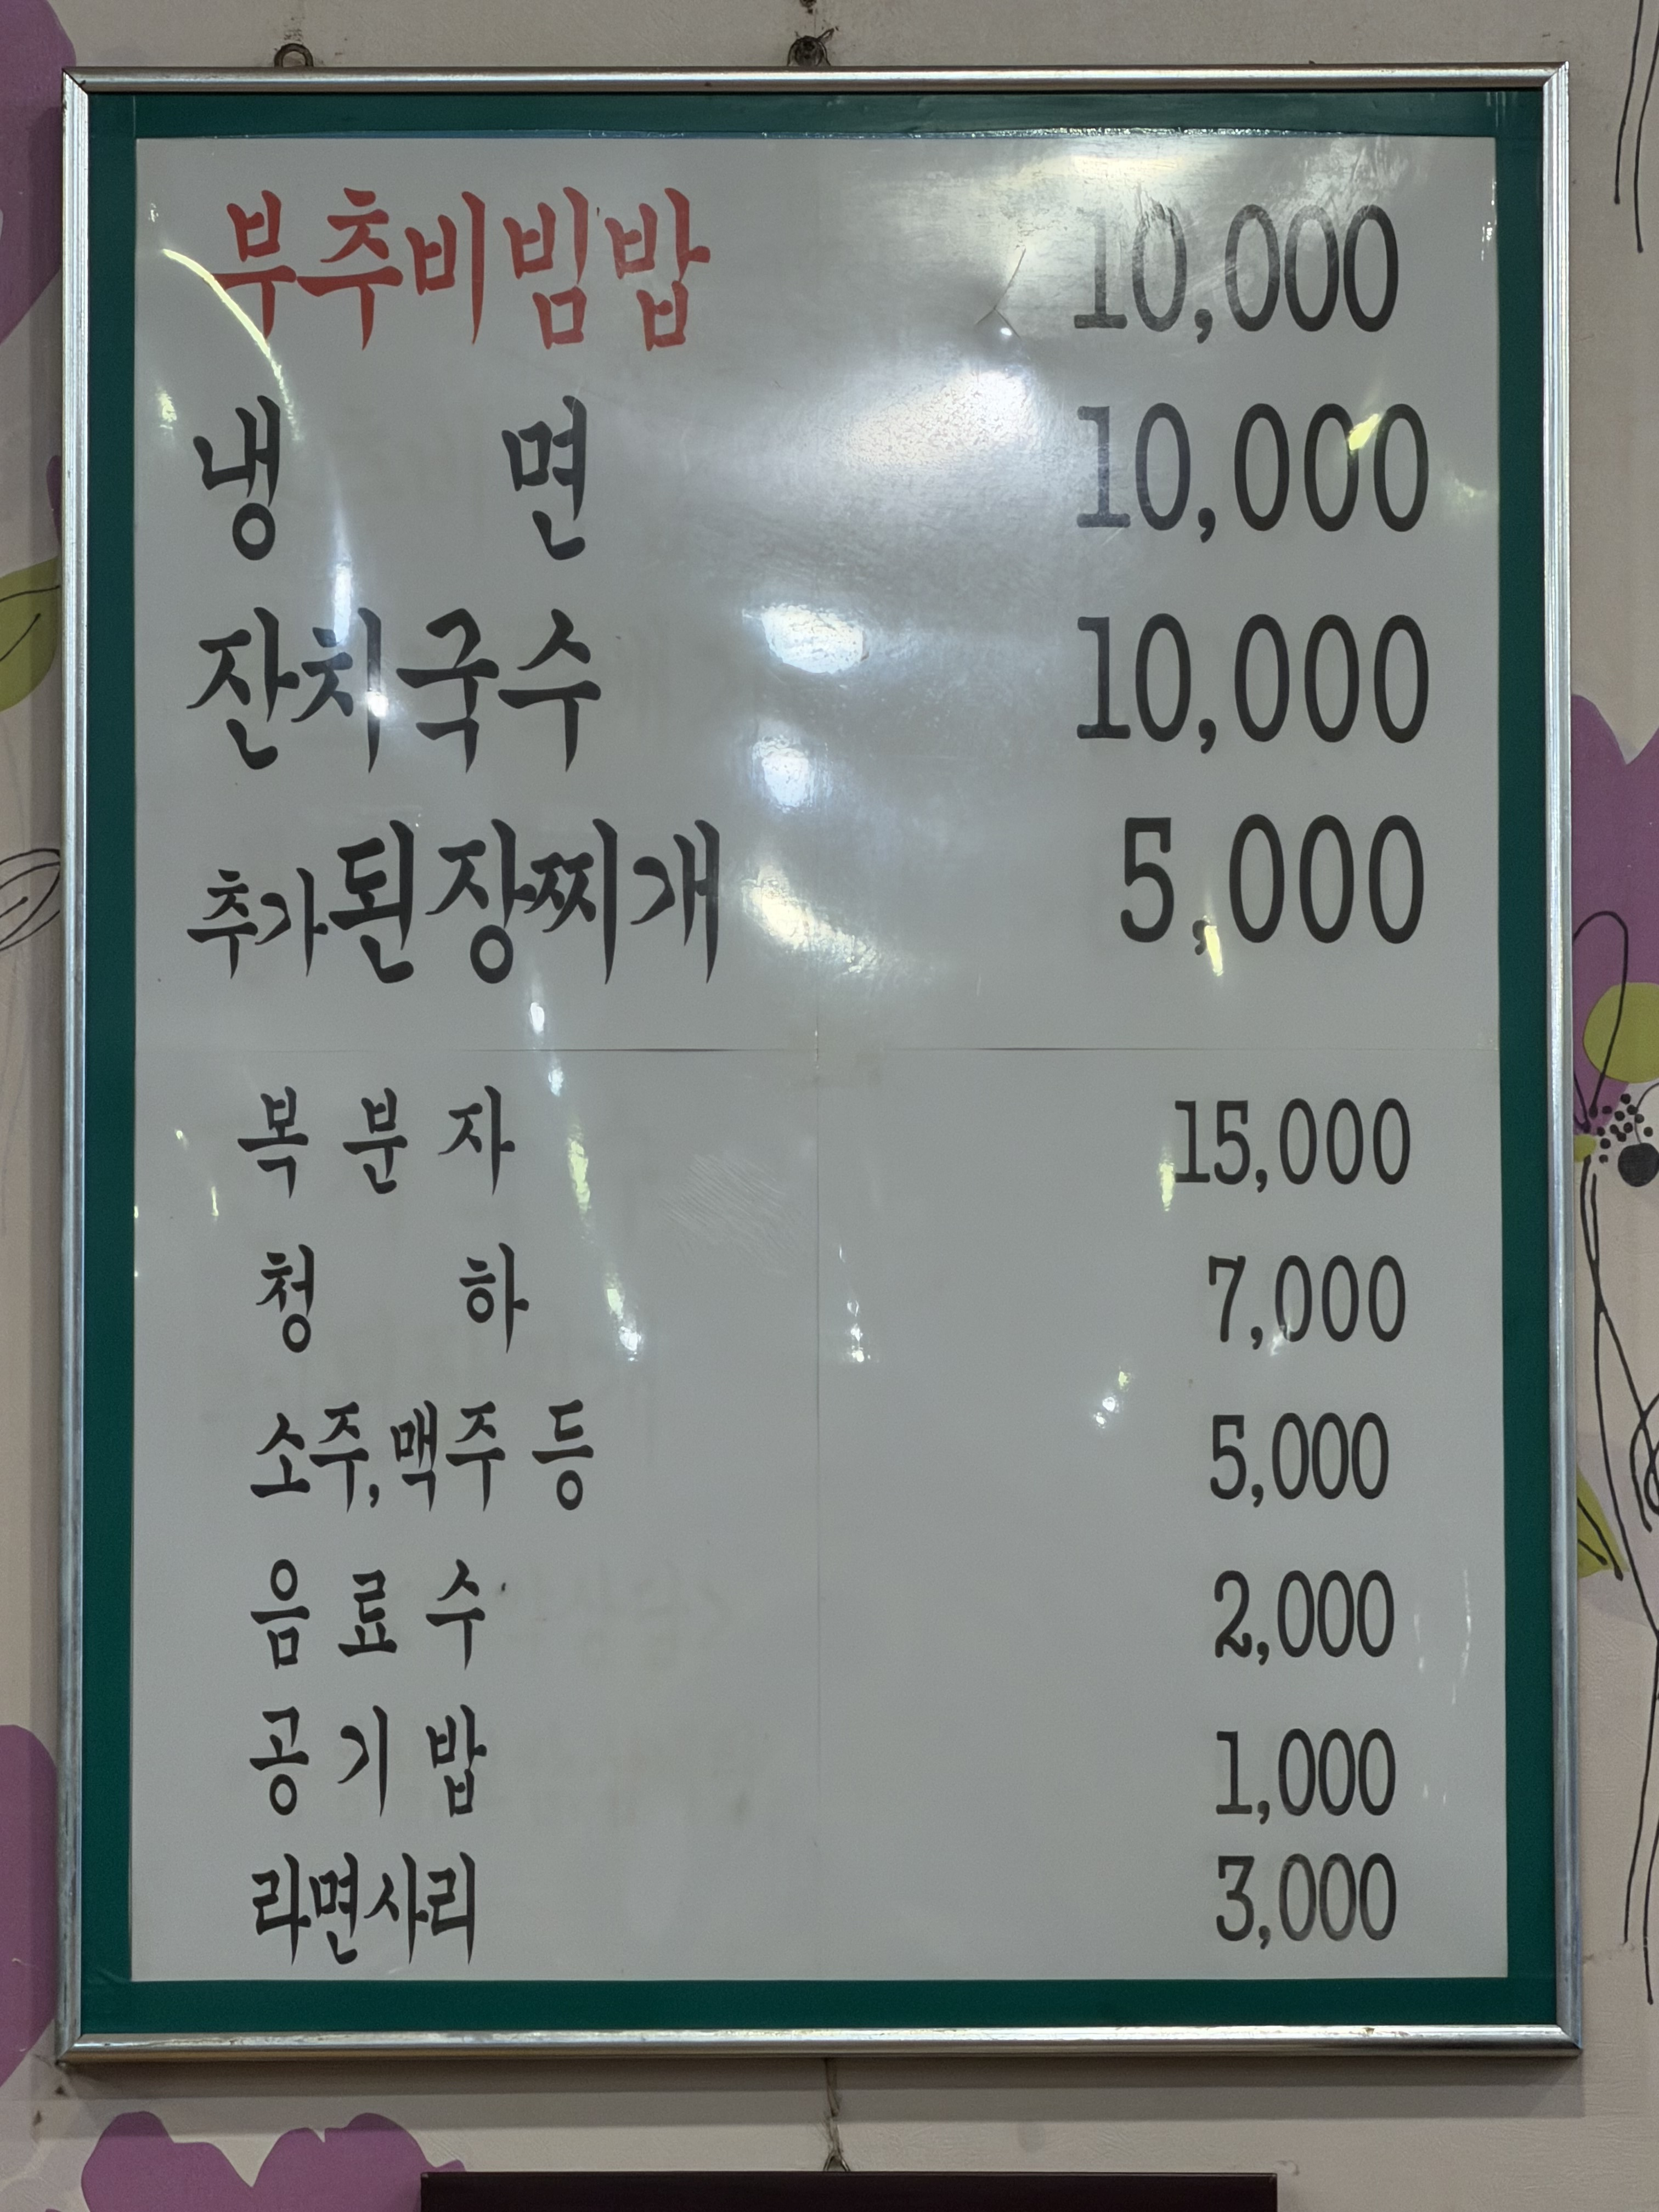 부추비빔밥 10,000
냉 면 10,000
잔치국수 10,000
추가된장찌개 5,000
복 분 자 15,000
청 하 7,000
소주,맥주 등 5,000
음 료 수 2,000
공 기 밥 1,000
라면사리 3,000